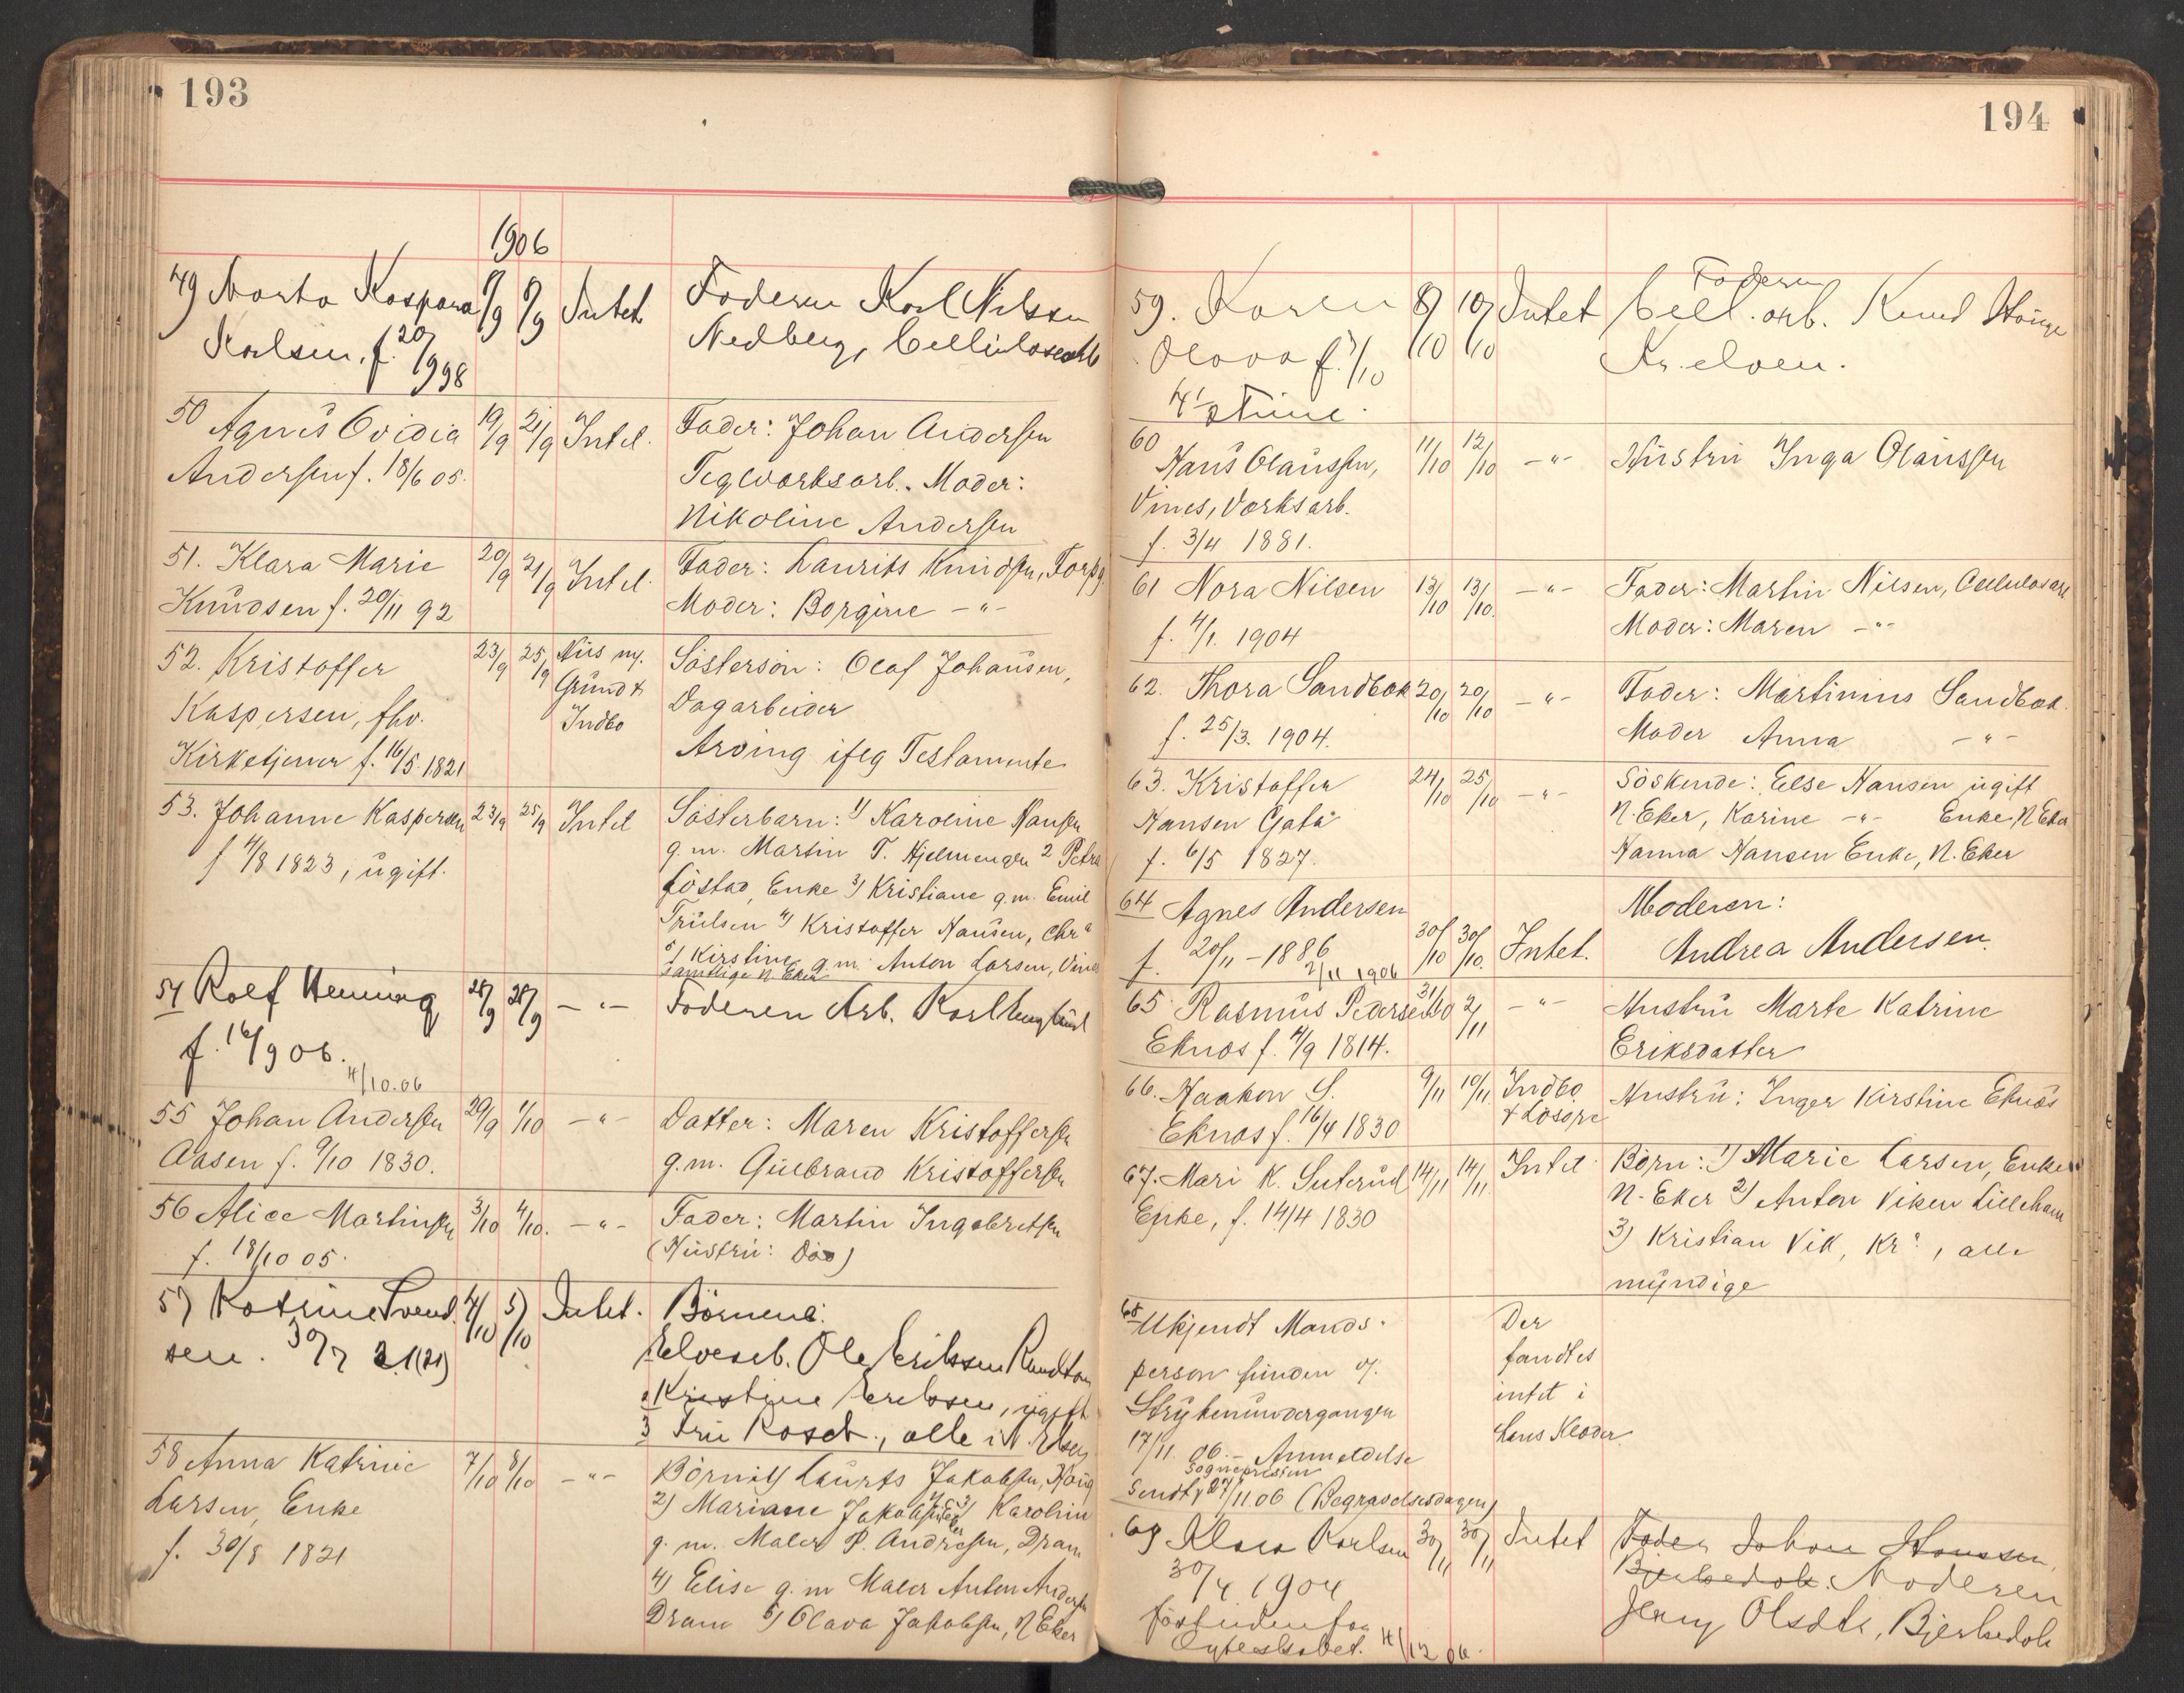 193
1906
49 Marta Kaspara 6/9 6/9 Intet Faderen Karl Nilssen
Karlsen, f. 20/1 98 Nedberg, Cellulosearb
50 Agnes Ovidia 19/9 21/9 Intet. Fader: Johan Andersen
Andersen f. 18/6 05. Teglværksarb. Moder:
Nikoline Andersen
51. Klara Marie 20/9 21/9 Intet. Fader: Laurits Knudsen, Torpg
Knudsen f. 20/11 92 Moder: Borgine -"-
52. Kristoffer 23/9 25/9 Hus m. Søstersøn: Olaf Johansen,
Kaspersen, fhv. Grund & Dagarbeider
Kirketjener f. 16/5 1821 Indbo Arving iflg Testamente
53. Johanne Kaspersen 23/9 25/9 Intet Søsterbarn: 1) Karoline Hansen
f 4/8 1823, ugift. g. m. Martin T. Hjelmengen 2 Petra
Enke 3) Kristiane g.m. Emil
Trulsen 4) Kristoffer Hansen, Chr.a
5) Kirstine g.m. Anton Larsen, Vines
samtlige N. Eker
54 Rolf Henning 28/9 28/9 -"- Faderen Arb. Karl
f. 16/9 06.
4/10.06
55 Johan Andersen 29/9 1/10 -"- Datter: Maren Kristoffersen
Aasen f. 9/10 1830. g.m. Gulbrand Kristoffersen
56 Alice Martinsen 3/10 4/10. -"- Fader: Martin Ingebretsen
f. 18/10 05. (Hustru: Død)
57 Katrine Svend- 4/10 5/10 Intet. Børnene:
sen. 30/7 21 (21) Ole Eriksen
2 Kristine Eriksen, ugift
3 Fru Rosch., alle i N. Eker
58 Anna Katrine 7/10 8/10 -"- Børn: 1) Laurits Jakobsen, Haug
Larsen, Enke 2) Mariane Jakobsen 3) Karoline
f. 30/8 1821 g. m. Maler P. Andresen, Dram
4) Elise g. m Maler Anton Andersen
Dram 5) Olava Jakobsen, N Eker
194
Faderen
59. Karen 8/10 10/10 Intet Cell. arb. Knud Hauge
Olava f. 7/10 Kr. elven.
4' Stime.
60
Hans Olaussen, 11/10 12/10 -"- Hustru Inga Olaussen
Vines, Værksarb.
f. 3/4 1881.
61 Nora Nilsen 13/10 13/10. -"- Fader: Martin Nilsen, Cellulosearb
f. 4/1. 1904 Moder: Maren -"-
62. Thora Sandbæk 20/10 20/10 -"- Fader: Martinius Sandbæk.
f. 25/3. 1904. Moder Anna -"-
63. Kristoffer 24/10 25/10 -"- Søskende: Else Hansen ugift
Hansen Gata N. Eker, Karine -"- Enke, N Eker
f. 6/5 1827. Hanna Hansen Enke, N. Eker
64 Agnes Andersen Moderen:
f. 20/11 - 1886 30/10 30/10. Intet. Andrea Andersen.
2/11 1906
65 Rasmus Pedersen 31/10 2/11 -"- Hustru Marte Katrine
Eknæs f. 4/9 1814. Eriksdatter
66. Haakon S. 9/11 10/11 Indbo Hustru: Inger Kirstine Eknæs
Eknæs f. 16/4 1830 & Løsøre
67. Mari K. Suterud 14/11 14/11. Intet Børn: 1) Marie Larsen, Enke
Enke, f. 14/4 1830 N. Eker 2) Anton Viken Lilleham
3) Kristian Vik, Kr.a, alle
myndige
68 Ukjendt Mands- Der
person funden v. fandtes
Strykenundergangen intet i
17/11. 06. - Anmeldelse hans Klæder.
Sognepresten
Sendt 27/11 06 (Begravelsesdagen)
69 Klara Karlsen 30/11 30/11 Intet Fader Johan Hanssen,
30/4 1904 Bjerkedok. Moderen
Jenny Olsdtr, Bjerkedok
4/12 06.